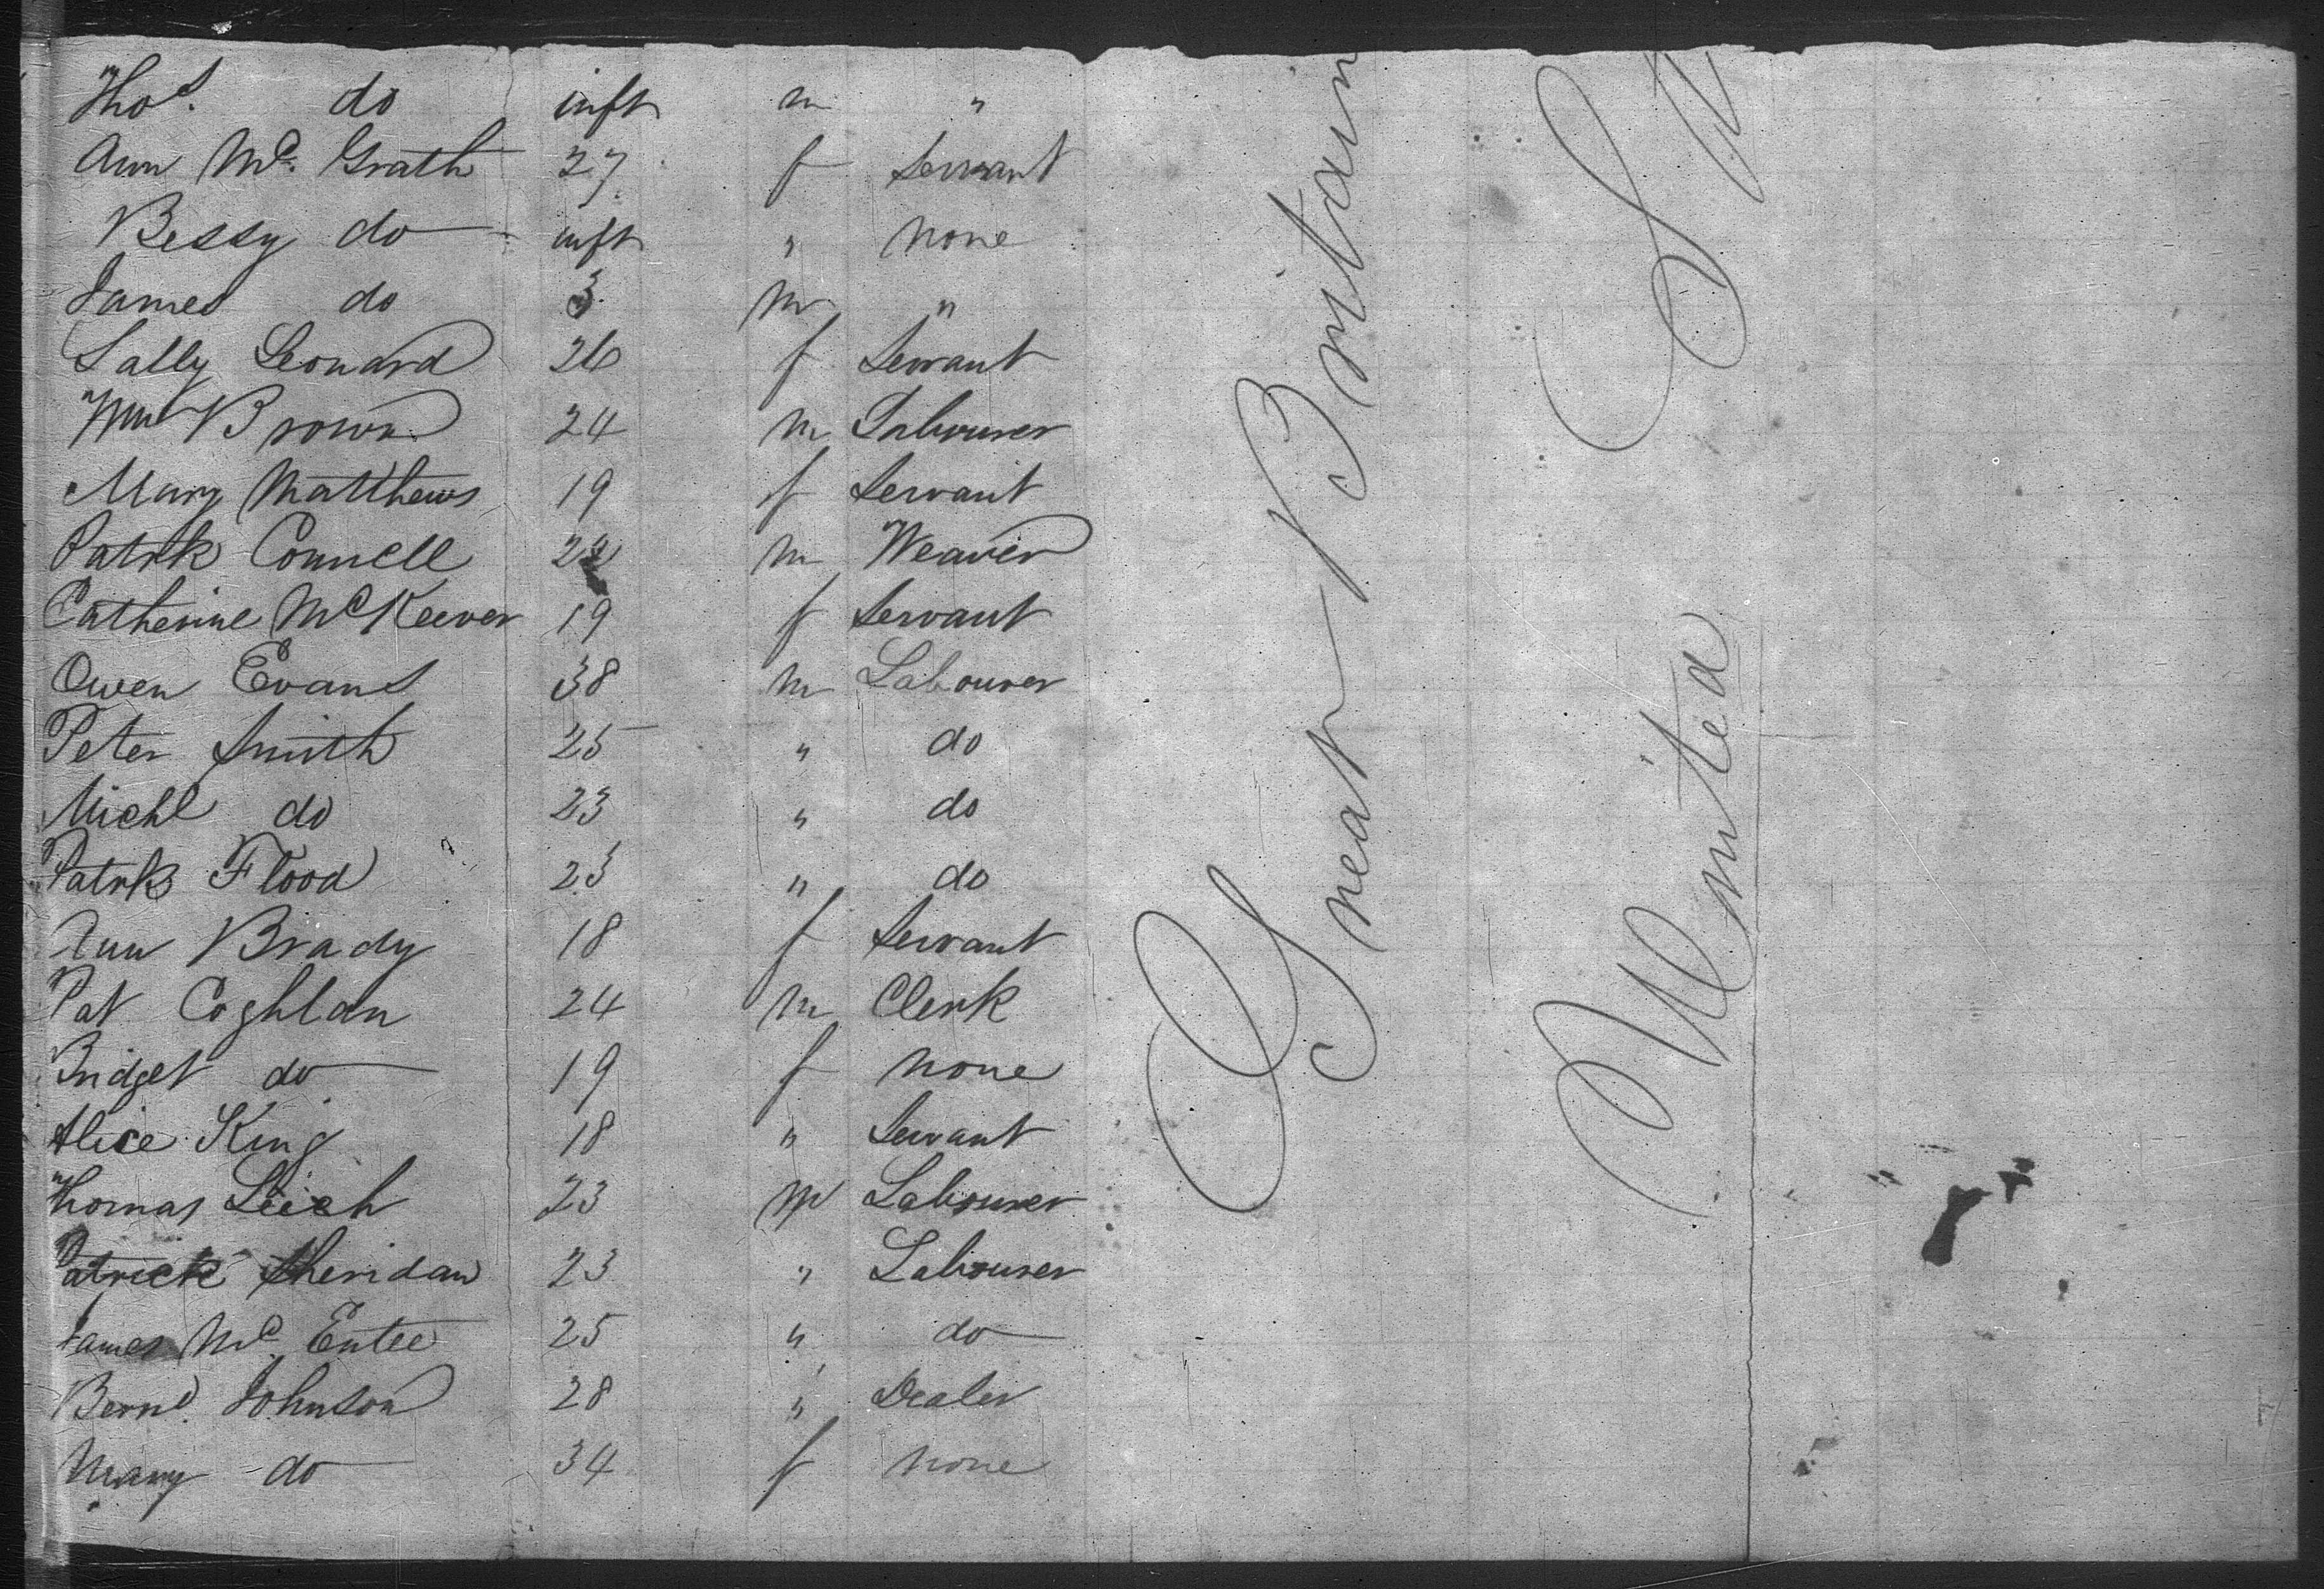 Thos. do inft m "
Ann Mc. Grath 27 f Servant
Bessy do inft " none
James do 3 m "
Sally Leonard 26 f Servant
Wm Brown 24 m Labourer
Mary Matthews 19 f Servant
Patrk Connell m Weaver
Catherine McKeever 19 f Servant
Owen Evans 38 m Labourer
Peter Smith 25 " do
Michl do 23 " do
Patrk Flood 23 " do
Ann Brady 18 f Servant
Pat Coghlan 24 m Clerk
Bridget do 19 f none
Alice King 18 " Servant
Thomas 23 m Labourer
Patrick Sheridan 23 " Labourer
James Mc. Entee 25 " do
Bernd. Johnson 28 " Dealer
Mary do 34 f none
Great Britain
United